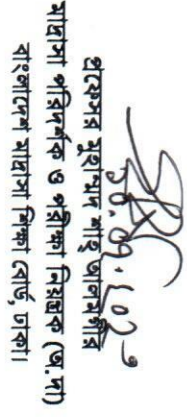 প্রফেসর মুহাম্মদ শাহ্ আলমগীর
মাদ্রাসা পরিদর্শক ও পরীক্ষা নিয়ন্ত্রক (অ.দা)
বাংলাদেশ মাদ্রাসা শিক্ষা বোর্ড, ঢাকা।